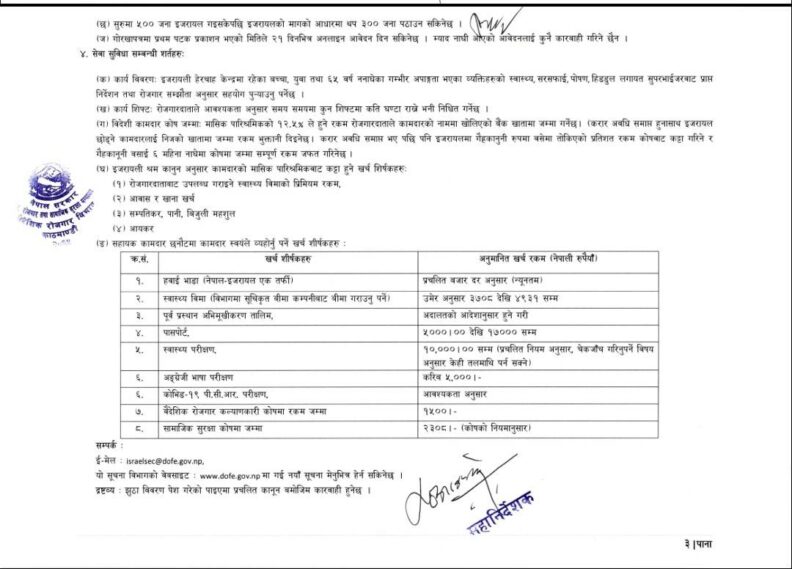 (छ) सुरुमा ५०० जना इजरायल गइसकेपछि इजरायलको मागको आधारमा थप ३०० जना पठाउन सकिनेछ ।
(ज) गोरखापत्रमा प्रथम पटक प्रकाशन भएको मितिले २१ दिनभित्र अनलाइन आवेदन दिन सकिनेछ । म्याद नाघी आएको आवेदनलाई कुनै कारवाही गरिने छैन ।
४. सेवा सुविधा सम्बन्धी शर्तहरुः
(क) कार्य विवरणः इजरायली हेरचाह केन्द्रमा रहेका बच्चा, युवा तथा ६५ वर्ष ननाघेका गम्भीर अपाङ्गता भएका व्यक्तिहरुको स्वास्थ्य,सरसफाई,पोषण,हिडडुल लगायत सुपरभाईजरबाट प्राप्त
निर्देशन तथा रोजगार सम्झौता अनुसार सहयोग पुऱ्याउनु पर्नेछ ।
(ख) कार्य शिफ्टः रोजगारदाताले आवश्यकता अनुसार समय समयमा कुन शिफ्टमा कति घण्टा राख्ने भनी निश्चित गर्नेछ ।
(ग) विदेशी कामदार कोष जम्माः मासिक पारिश्रमिकको १२.५% ले हुने रकम रोजगारदाताले कामदारको नाममा खोलिएको बैंक खातामा जम्मा गर्नेछ। (करार अवधि समाप्त हुनासाथ इजरायल
छोड्ने कामदारलाई निजको खातामा जम्मा रकम भुक्तानी दिइनेछ। करार अवधि समाप्त भए पछि पनि इजरायलमा गैह्रकानूनी रुपमा बसेमा तोकिएको प्रतिशत रकम कोषबाट कट्टा गरिने र
गैह्रकानूनी बसाई ६ महिना नाघेमा कोषमा जम्मा सम्पूर्ण रकम जफत गरिनेछ ।
(घ) इजरायली श्रम कानुन अनुसार कामदारको मासिक पारिश्रमिकबाट कट्टा हुने खर्च शिर्षकहरुः
(१) रोजगारदाताबाट उपलब्ध गराइने स्वास्थ्य विमाको प्रिमियम रकम,
(२) आवास र खाना खर्च
(३) सम्पतिकर, पानी, बिजुली महशुल
(४) आयकर
(ङ) सहायक कामदार छनौटमा कामदार स्वयंले व्यहोर्नु पर्ने खर्च शीर्षकहरु :
क्र.सं. खर्च शीर्षकहरु अनुमानित खर्च रकम (नेपाली रुपैयाँ)
१. हवाई भाडा (नेपाल-इजरायल एक तर्फी) प्रचलित बजार दर अनुसार (न्यूनतम)
२. स्वास्थ्य विमा (विभागमा सूचिकृत बीमा कम्पनीबाट बीमा गराउनु पर्ने) उमेर अनुसार ३७०८ देखि ४९३१ सम्म
३. पूर्व प्रस्थान अभिमूखीकरण तालिम, अदालतको आदेशानुसार हुने गरी
४. पासपोर्ट, ५०००।०० देखि १२००० सम्म
५. स्वास्थ्य परीक्षण, १०,०००।०० सम्म (प्रचलित नियम अनुसार, चेकजाँच गरिनुपर्ने विषय
अनुसार केही तलमाथि पर्न सक्ने)
६. अङ्ग्रेजी भाषा परीक्षण करिव ५,०००।-
६. कोभिड-१९ पी.सी.आर. परीक्षण, आवश्यकता अनुसार
७. वैदेशिक रोजगार कल्याणकारी कोषमा रकम जम्मा १५००।-
८. सामाजिक सुरक्षा कोषमा जम्मा २३०८।- (कोषको नियमानुसार)
सम्पर्क :
ई-मेल : israelsec@dofe.gov.np,
यो सूचना विभागको वेवसाइट : www.dofe.gov.np मा गई नयाँ सूचना मेनुभित्र हेर्न सकिनेछ ।
द्रष्टव्य : झुठा विवरण पेश गरेको पाइएमा प्रचलित कानून बमोजिम कारवाही हुनेछ ।
महानिर्देशक
३|पाना